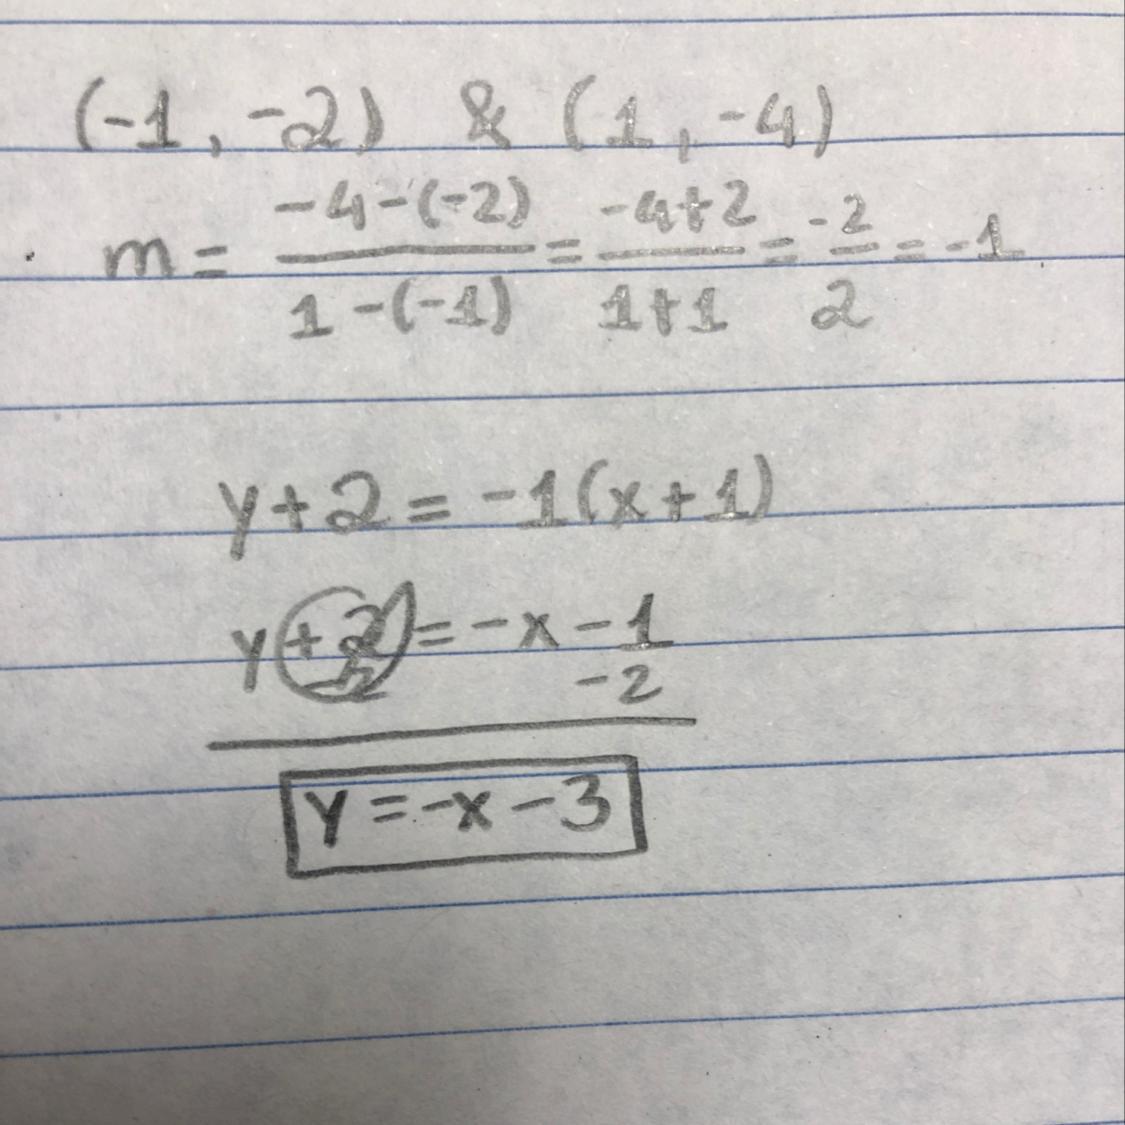 (-1, -2) & (1, -4)
m = -4-(-2)/1-(-1) = -4+2/1+1 = -2/2 = -1
y+2 = -1(x+1)
y+2 = -x-1
-2 -2
y = -x-3